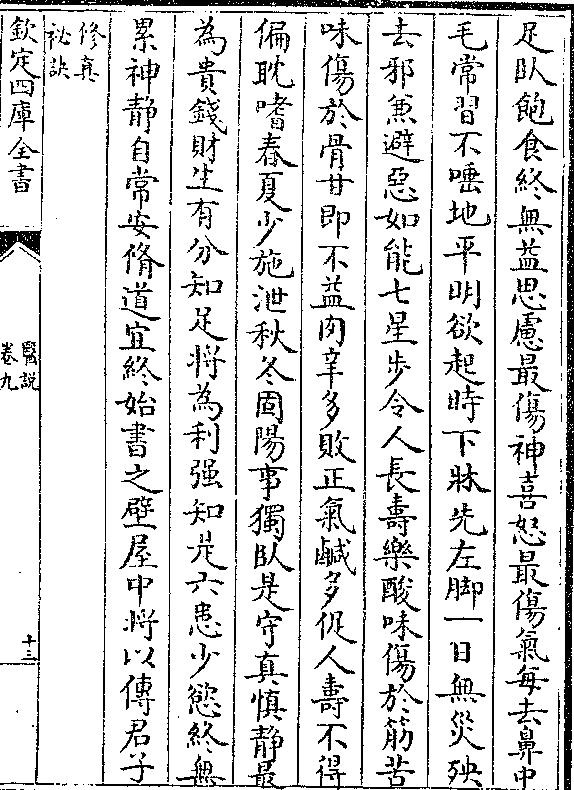 足臥飽食終無益思慮最傷神喜怒最傷氣每去鼻中
毛常習不唾地平明欲起時下牀先左脚一日無災殃
去邪兼避惡如能七星步令人長壽樂酸味傷於筋苦
味傷於骨甘即不益肉辛多敗正氣鹹多促人壽不得
偏耽嗜春夏少施泄秋冬固陽事獨臥是守真慎静最
為貴錢財生有分知足將為利强知是六患少慾終無
累神静自常安脩道宜終始書之壁屋中將以傳君子
修真
祕訣
欽定四庫全書
醫説
卷九
十三